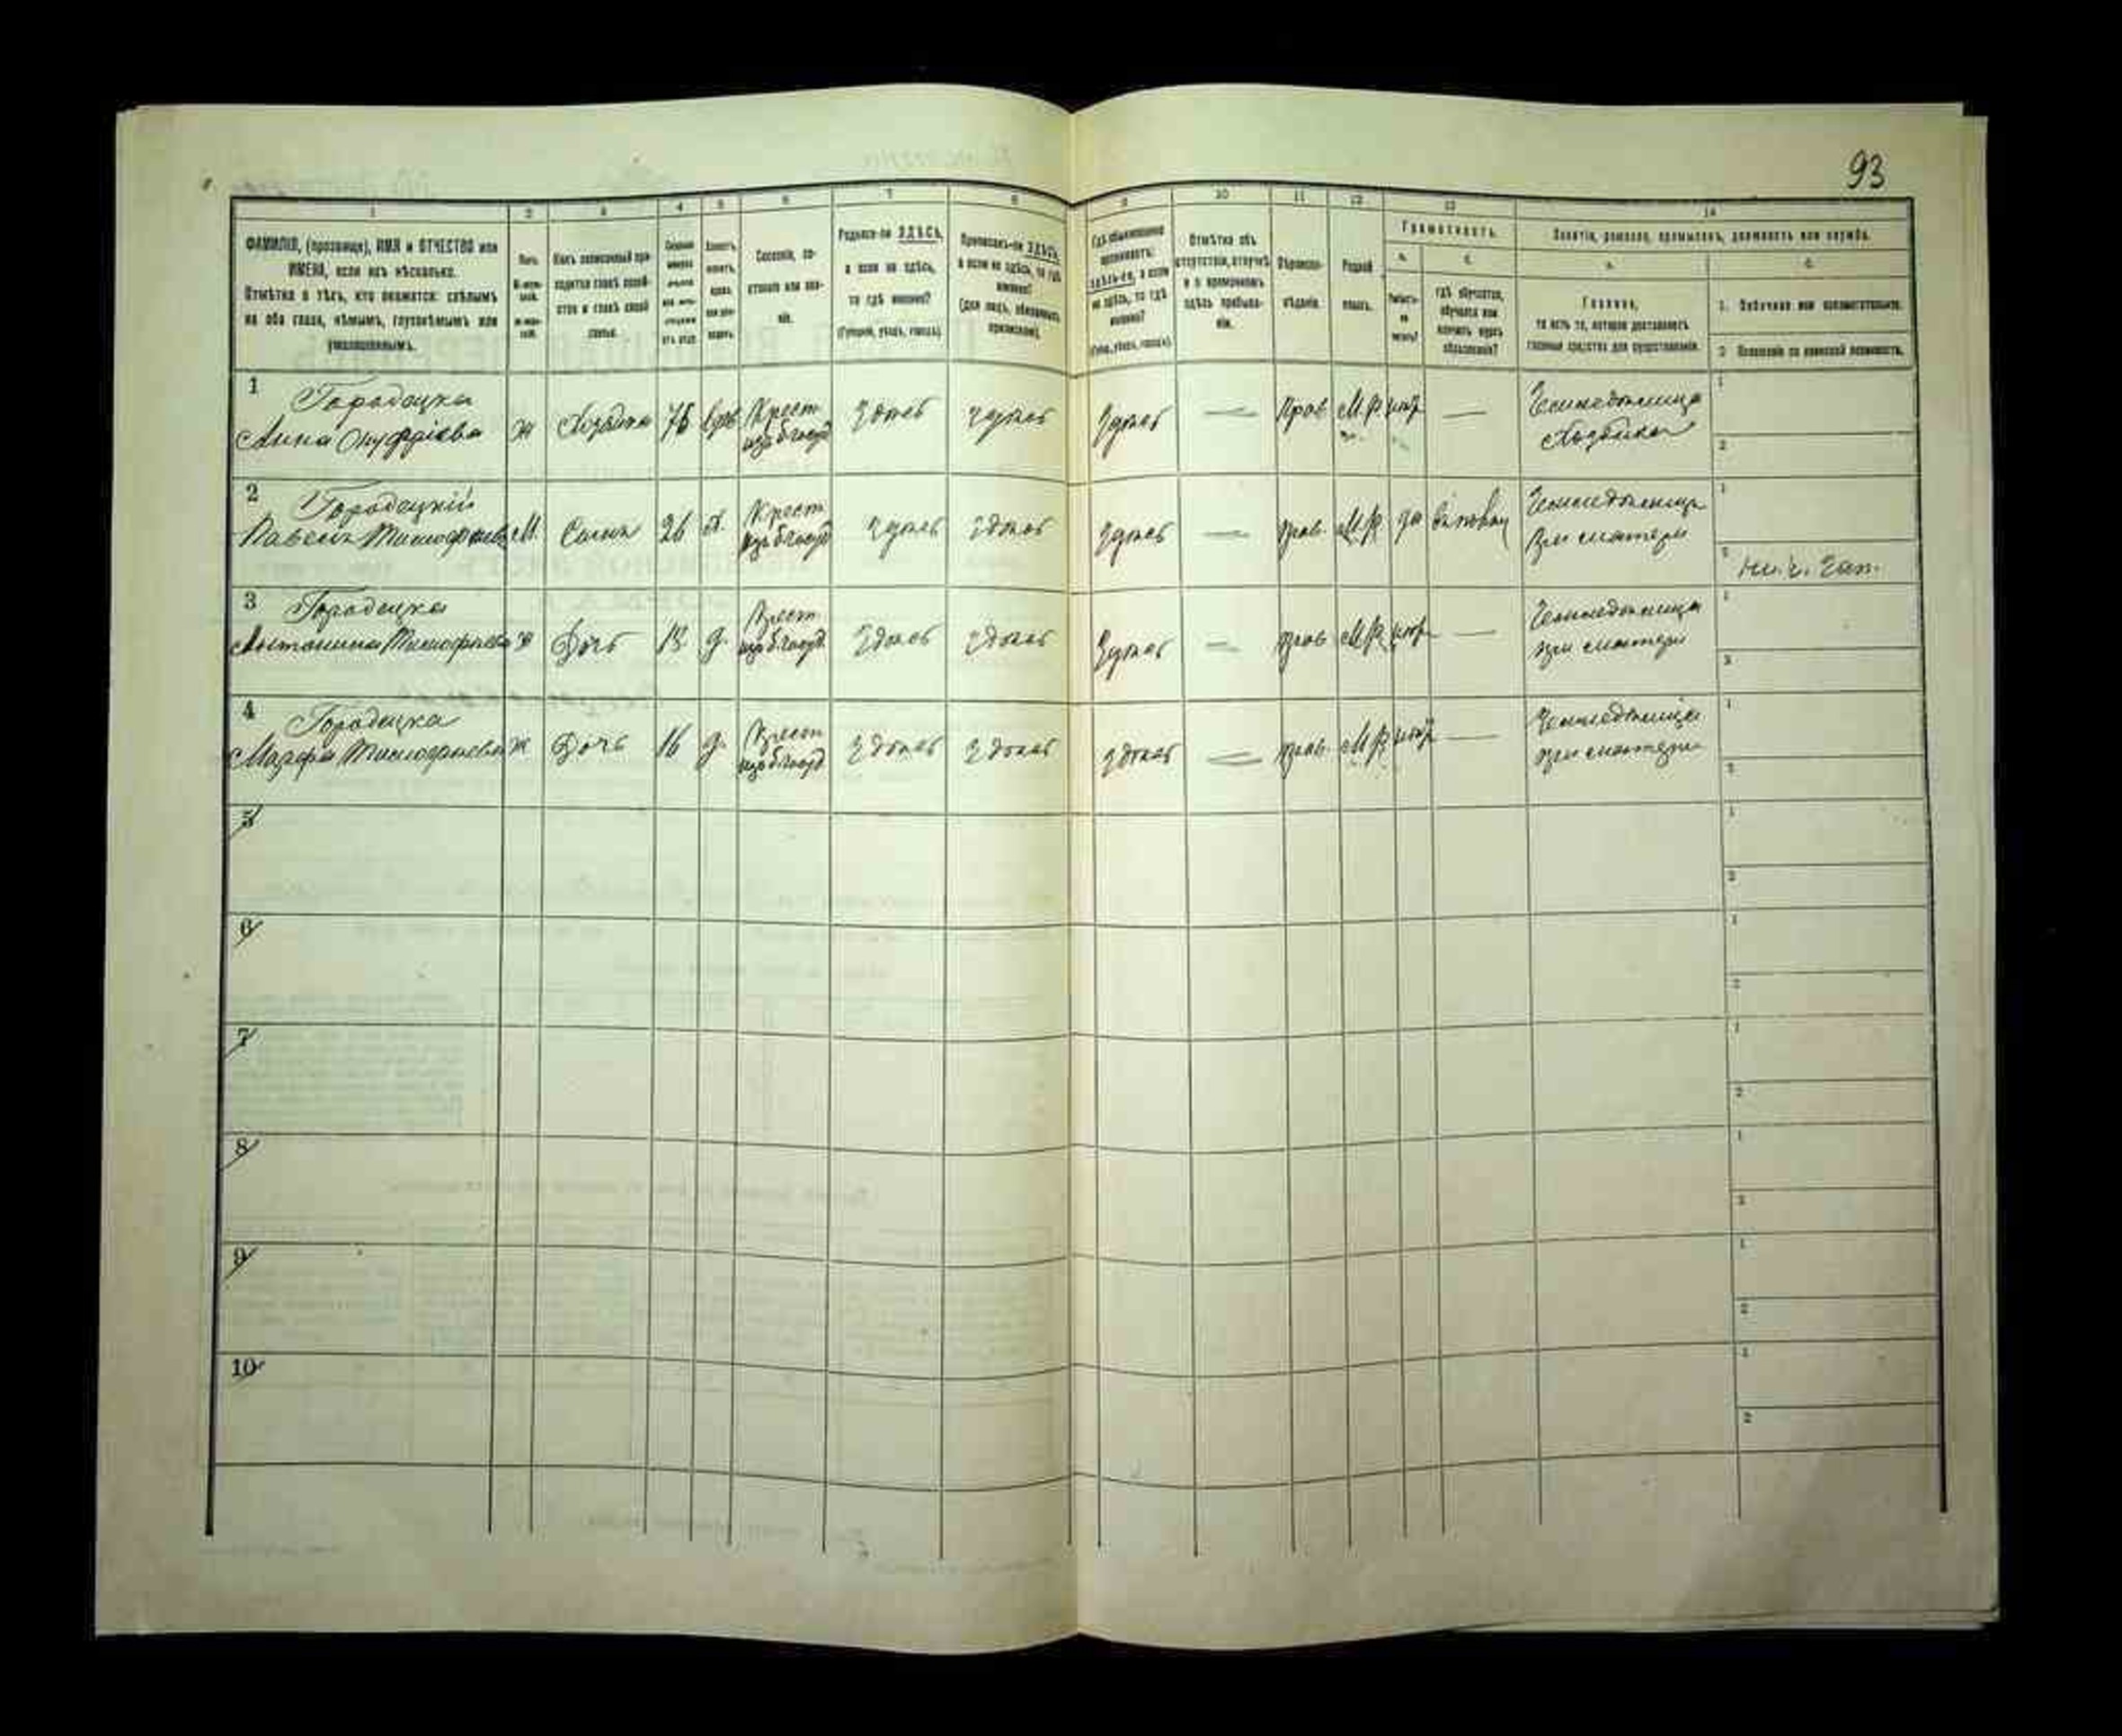 93
1 2 3 4 5 6 7 8 9 10 11 12 13 14
ФАМИЛІЯ, (прозвище), ИМЯ и ОТЧЕСТВО или
ИМЕНА, если ихъ нѣсколько.
Отмѣтка о тѣхъ, кто окажется: слѣпымъ
на оба глаза, нѣмымъ, глухонѣмымъ или
умалишеннымъ.
Полъ.
Какъ записанный при-
ходится главѣ хозяй-
ства и главѣ своей
семьи.
Сословіе, со-
стояніе или зва-
ніе.
Родился-ли ЗДѢСЬ,
а если не здѣсь,
то гдѣ именно?
(Губернія, уѣздъ, городъ).
Приписанъ-ли ЗДѢСЬ,
а если не здѣсь, то гдѣ
именно?
(для лицъ, обязанныхъ
припискою).
Гдѣ обыкновенно
проживаетъ:
здѣсь-ли, а если
не здѣсь, то гдѣ
именно?
(Губ., уѣздъ, городъ).
Отмѣтка объ
отсутствіи, отлучкѣ
и о временномъ
здѣсь пребыва-
ніи.
Вѣроиспо-
вѣданіе.
Родной
языкъ.
Грамотность.
а. б.
Умѣетъ-
ли
читать?
гдѣ обучается,
обучался или
кончилъ курсъ
образованія?
Занятіе, ремесло, промыселъ, должность или служба.
а. б.
Главное,
то есть то, которое доставляетъ
главныя средства для существованія.
1. Побочное или вспомогательное.
2. Положеніе по воинской повинности.
1 Городецка
Анна Онуфріева ж Хозяйка 75 вдов Крест изъ б госуд здѣсь здѣсь здѣсь — Прав М.р. нѣтъ — Земледѣлица Хозяйка
2 Городецкій
Павелъ Тимофеевъ М Сынъ 26 х. Крест изъ б госуд здѣсь здѣсь здѣсь — прав М.р. да Земледѣлецъ при матери
3 Городецка
Антонина Тимофеева ж Дочь 18 д. Крест изъ б госуд здѣсь здѣсь здѣсь — прав М.р. нѣтъ — Земледѣлица при матери
4 Городецка
Марфа Тимофеева ж Дочь 16 д. Крест изъ б госуд здѣсь здѣсь здѣсь — прав М.р. нѣтъ — Земледѣлица при матери
5
6
7
8
9
10